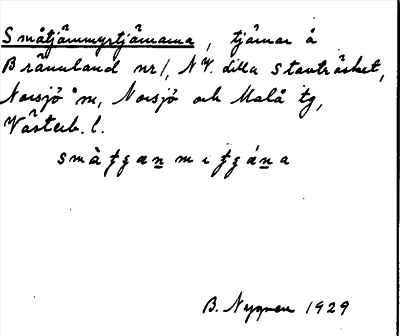 Småtjärnmyrtjärnarna, tjärnar å
Brännland nr 1, NV. Lilla Stavträsket,
Norsjö sn, Norsjö och Malå tg,
Västerb. l.
B. Nygren 1929